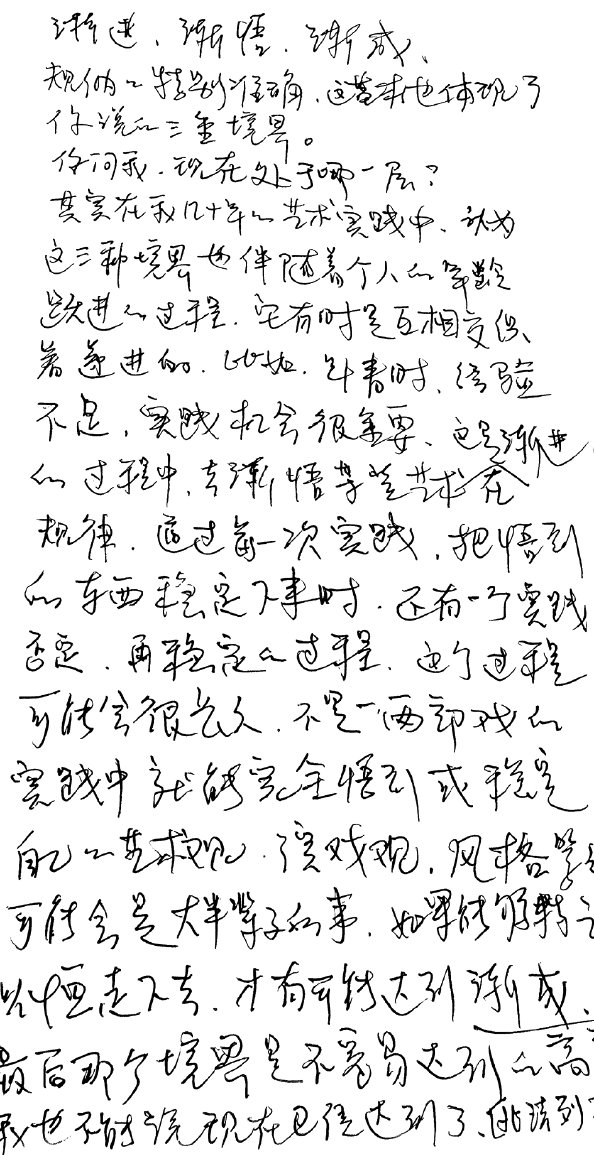 渐进、渐悟、渐成、
规纳的特别准确,这基本也体现了
你说的三重境界。
你问我,现在处于哪一层?
其实在我几十年的艺术实践中,认为
这三种境界也伴随着个人的年龄
跃进的过程,它有时是互相交织
着逐进的,比如,年青时,经验
不足,实践机会很重要、这是渐进
的过程中,去渐悟掌艺术在
规律,通过每一次实践,把悟到
的东西稳定下来时,还有一个实践
否定,再稳定的过程,这个过程
可能会很长久,不是一两部戏的
实践中就能完全悟到或稳定
自己的艺术观、演戏观,风格等
可能会是大半辈子的事,如果能够
以恒走下去,才有可能达到渐成、
最后那个境界是不容易达到的高
我也不能说现在已经达到了、